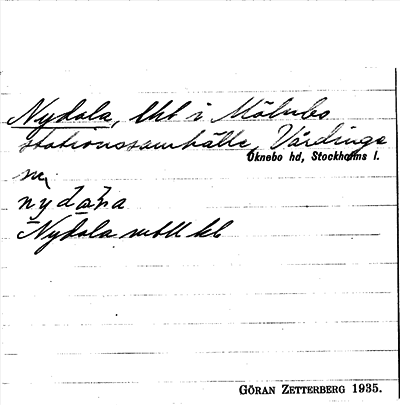 Nydala, lht i Mölnbo
stationssamhälle, Vårdinge
Öknebo hd, Stockholms l.
sn,
nydana
Nydala
GÖRAN ZETTERBERG 1935.